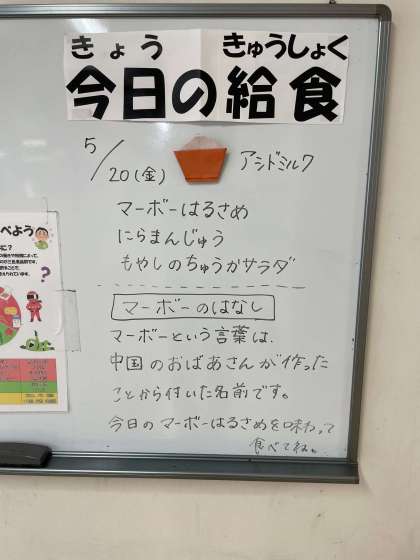 きょう きゅうしょく
今日の給食
5/20(金) アシドミルク
マーボーはるさめ
にらまんじゅう
もやしのちゅうかサラダ
マーボーのはなし
マーボーという言葉は、
中国のおばあさんが作った
ことから付いた名前です。
今日のマーボーはるさめを味わって
食べてね。
べよう
に?
?